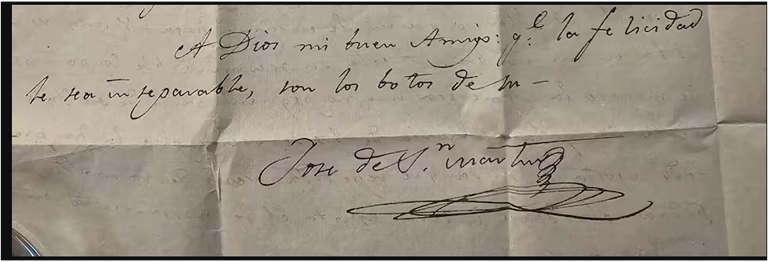 A Dios mi buen Amigo: q.e la felicidad
te sea inseparable, son los botos de su —
Jose de S.n Martin